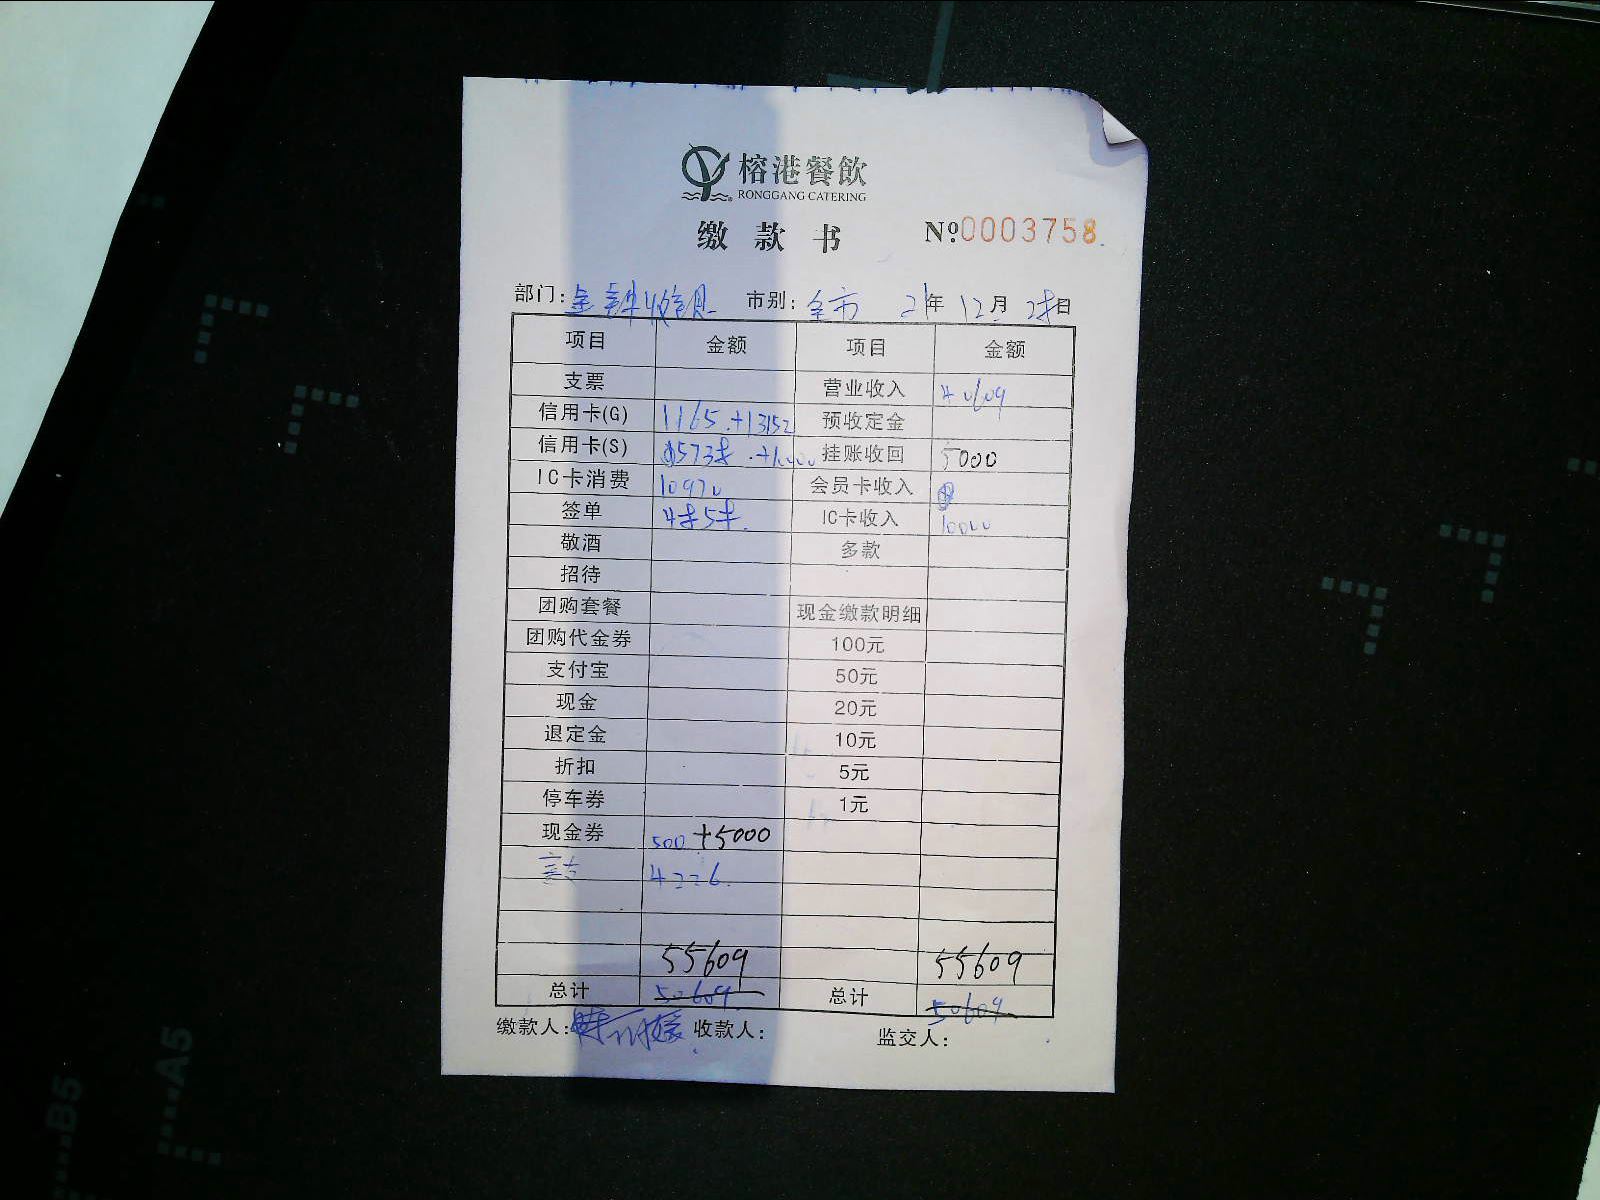 榕港餐飲
RONGGANG CATERING
缴款书 Nº:0003758
部门: 市别:全市 21年12月28日
项目 金额 项目 金额
支票 营业收入 40609
信用卡(G) 1165.+13152 预收定金
信用卡(S) 挂账收回 5000
IC卡消费 10970 会员卡收入
签单 4858. IC卡收入 10000
敬酒 多款
招待
团购套餐 现金缴款明细
团购代金券 100元
支付宝 50元
现金 20元
退定金 10元
折扣 5元
停车券 1元
现金券 500+5000
4226.
55609 55609
总计 50609 总计 50609
缴款人: 收款人: 监交人:
A5
B5